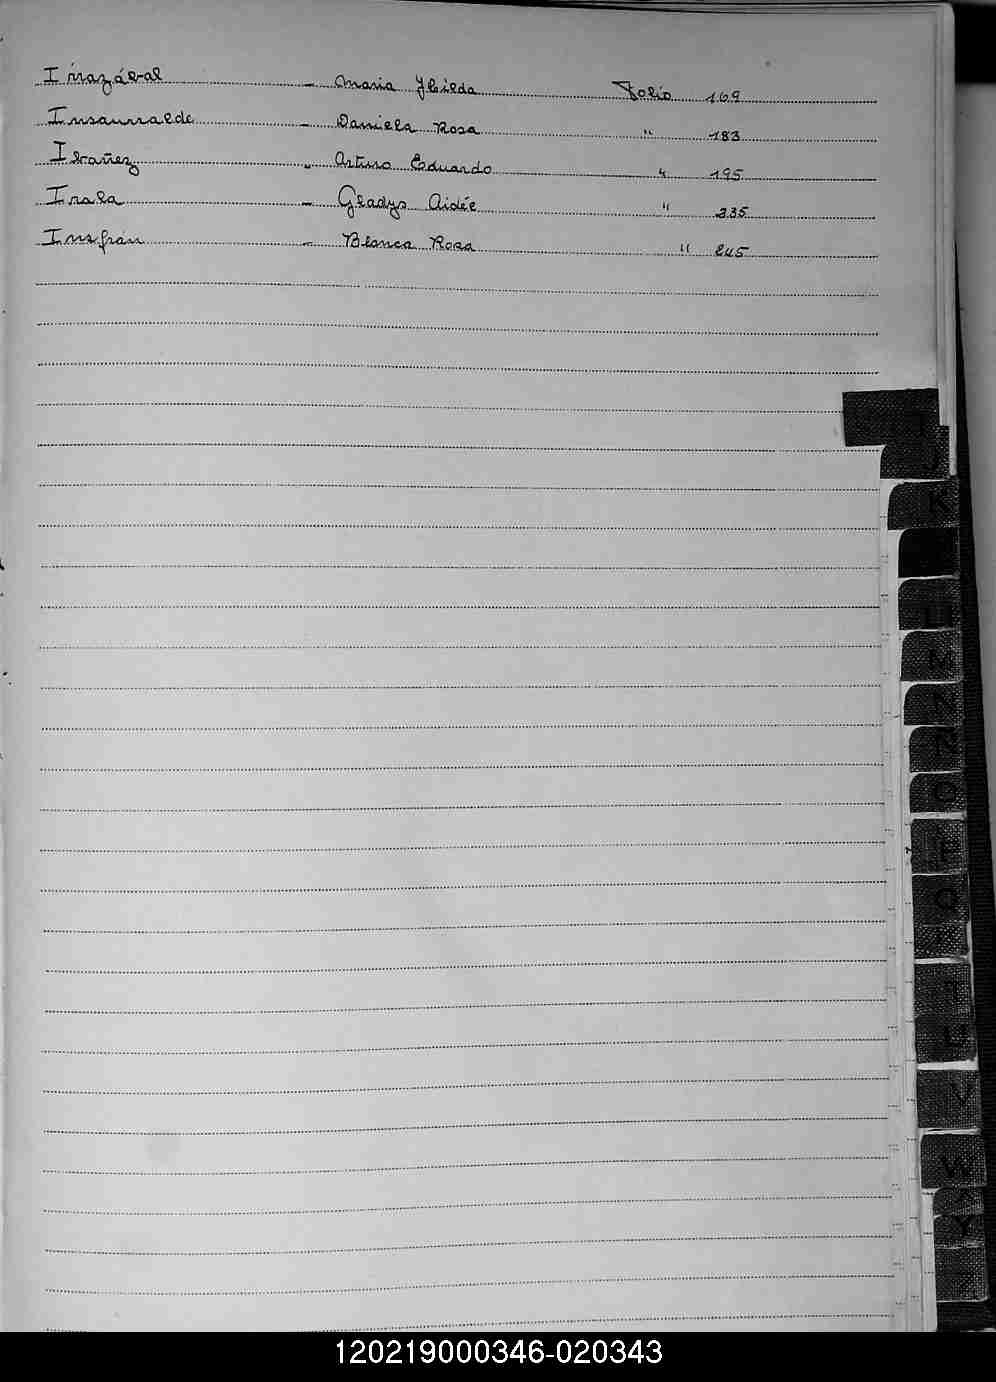 Irrazábal - Maria Ilda Folio 169
Insaurralde - Daniela Rosa " 183
Ibañez - Arturo Eduardo " 195
Irala - Gladys Aidée " 235
Insfrán - Blanca Rosa " 245
K
M
N
Ñ
O
Q
V
W
Y
120219000346-020343